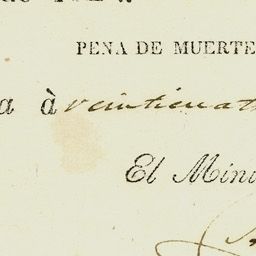 PENA DE MUERTE
a à veinticuat
El Mini